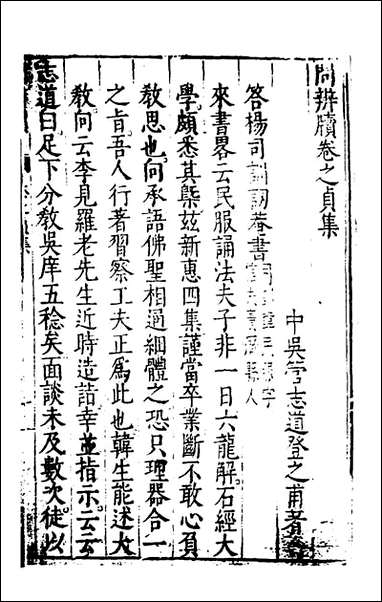 問辨牘卷之貞集
中吳管志道登之甫著
答楊司訓詞菴書
來書畧云民服誦法夫子非一日六龍解石經大
學頗悉其槩玆新惠四集謹當卒業斷不敢心負
教思也向承語佛聖相通細體之恐只理器合一
之旨吾人行著習察工夫正爲此也韓生能述大
教向云李見羅老先生近時造詣幸並指示云云
志道曰足下分教吳庠五稔矣面談未及數次徒以